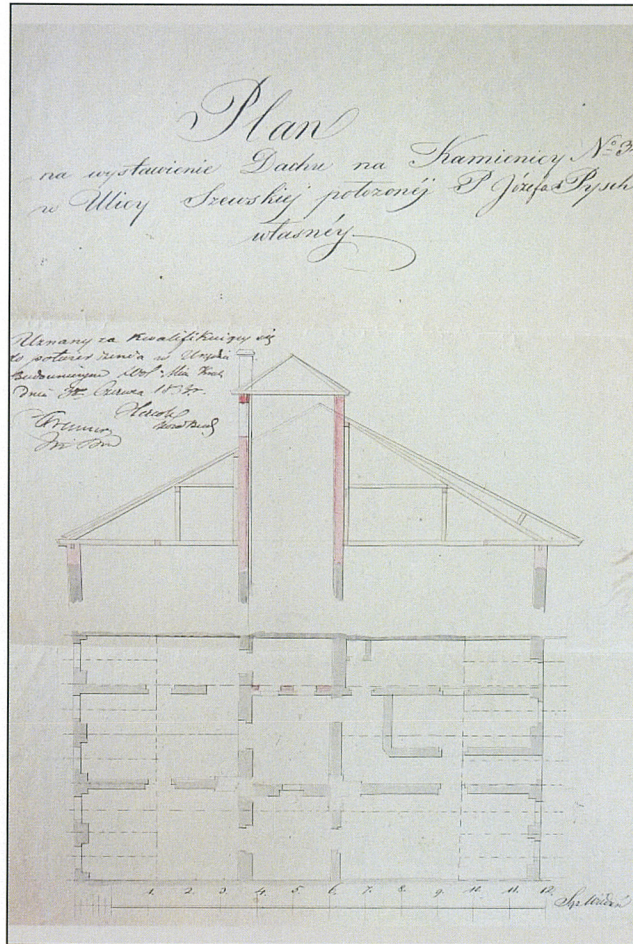 Plan
na wystawienie Dachu na Kamienicy No 3
w Ulicy Szewskiej położonéj P Józefa Pysch
własnéy
Uznany za kwalifikuiący się
do potwierdzenia w Urzędzie
Budowniczym Wol: Mia
Dnia Czerwca
1. 2. 3. 4. 5. 6. 7. 8. 9. 10. 11. 12.